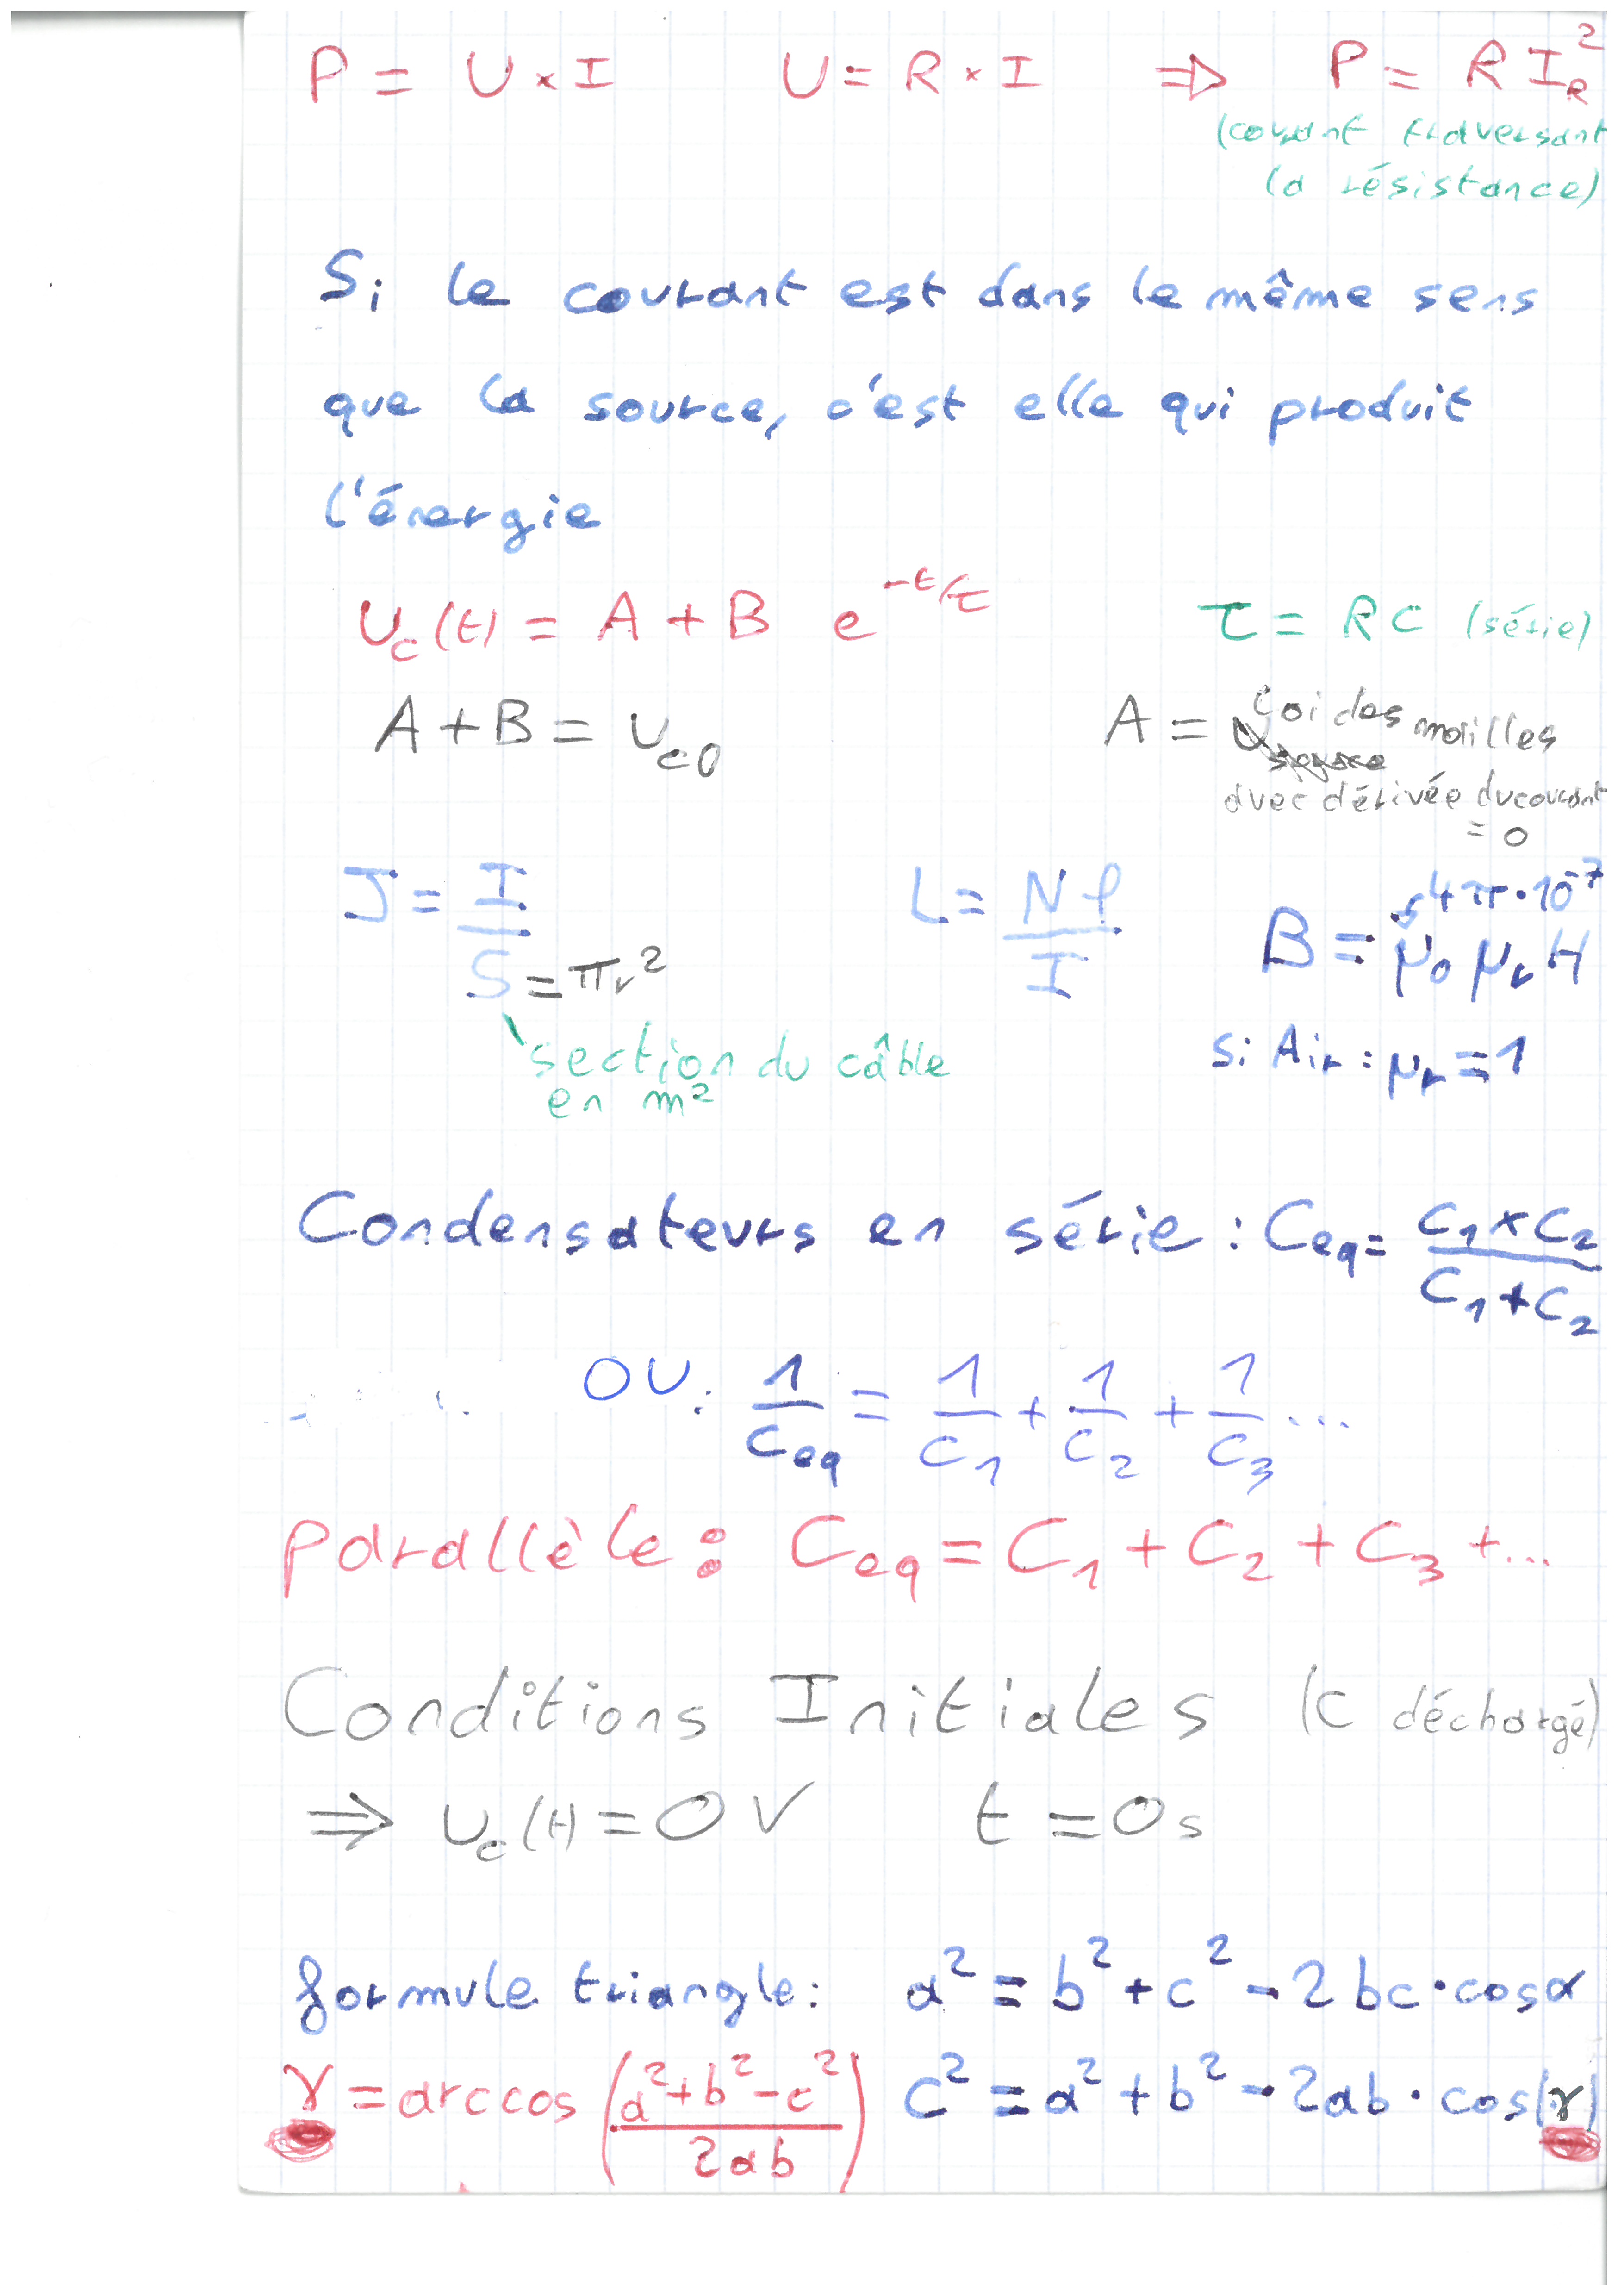 P = U × I U = R × I ⇒ P = R I_R²
(courant traversant
la résistance)
Si le courant est dans le même sens
que la source, c'est elle qui produit
l'énergie
U_c(t) = A + B e^(-t/τ) τ = RC (série)
A + B = U_c0 A = Loi des mailles
avec dérivée du courant
= 0
J = I/S = πr² L = Nφ/I B = μ₀ μr H
4π·10⁻⁷
section du câble
en m²
si Air : μr = 1
Condensateurs en série : Ceq = (C₁×C₂)/(C₁+C₂)
OU : 1/Ceq = 1/C₁ + 1/C₂ + 1/C₃ ...
parallèle : Ceq = C₁ + C₂ + C₃ + ...
Conditions Initiales (C déchargé)
⇒ U_c(t) = 0 V t = 0 s
formule triangle : a² = b² + c² - 2bc·cosα
γ = arccos((a²+b²-c²)/(2ab)) c² = a² + b² - 2ab·cos(γ)